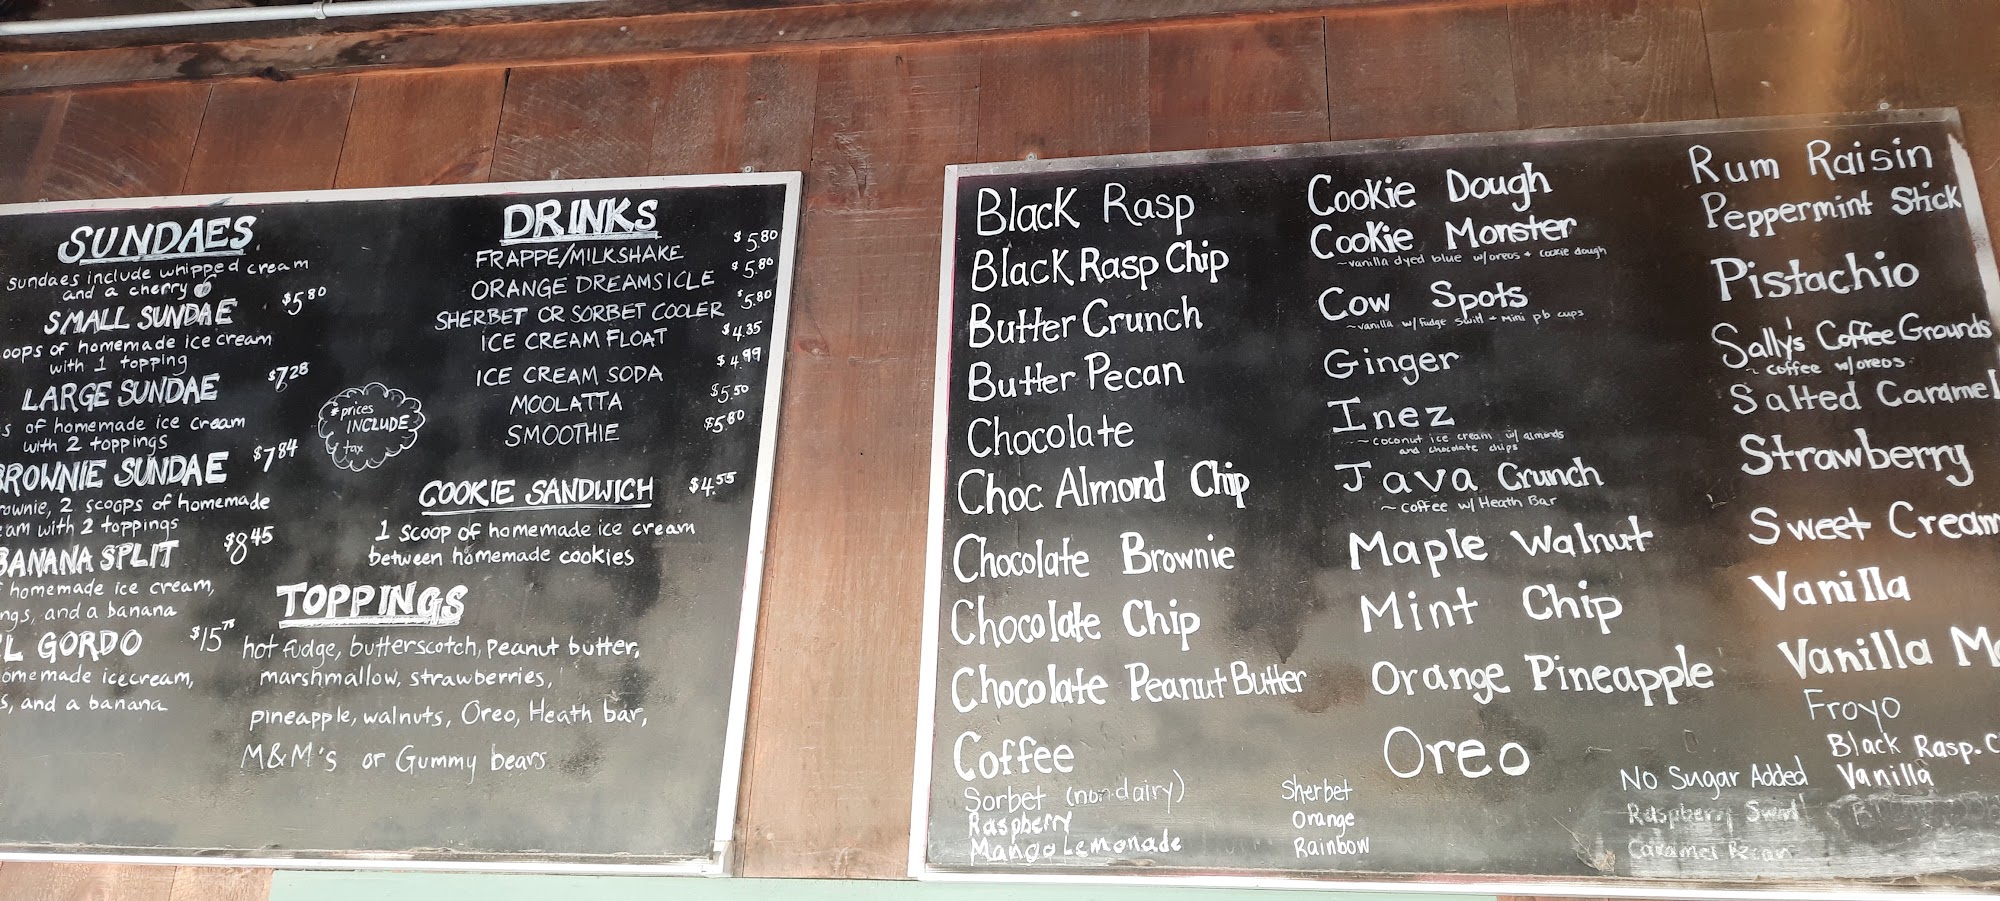 SUNDAES
sundaes include whipped cream
and a cherry
SMALL SUNDAE $5.80
oops of homemade ice cream
with 1 topping
LARGE SUNDAE $7.28
s of homemade ice cream
with 2 toppings
BROWNIE SUNDAE $7.84
rownie, 2 scoops of homemade
eam with 2 toppings
BANANA SPLIT $8.45
homemade ice cream,
ngs, and a banana
EL GORDO
omemade icecream,
s, and a banana
*prices
INCLUDE
tax
DRINKS
FRAPPE/MILKSHAKE $5.80
ORANGE DREAMSICLE $5.80
SHERBET OR SORBET COOLER $5.80
ICE CREAM FLOAT $4.35
ICE CREAM SODA $4.99
MOOLATTA $5.50
SMOOTHIE $5.80
COOKIE SANDWICH $4.55
1 scoop of homemade ice cream
between homemade cookies
TOPPINGS
hot fudge, butterscotch, peanut butter,
marshmallow, strawberries,
pineapple, walnuts, Oreo, Heath bar,
M&M's or Gummy bears
Black Rasp
Black Rasp Chip
Butter Crunch
Butter Pecan
Chocolate
Choc Almond Chip
Chocolate Brownie
Chocolate Chip
Chocolate Peanut Butter
Coffee
Sorbet (nondairy)
Raspberry
Mango Lemonade
Cookie Dough
Cookie Monster
~vanilla dyed blue w/oreos + cookie dough
Cow Spots
~vanilla w/fudge swirl + mini pb cups
Ginger
Inez
~coconut ice cream w/ almonds
and chocolate chips
Java Crunch
~coffee w/ Heath Bar
Maple Walnut
Mint Chip
Orange Pineapple
Oreo
Sherbet
Orange
Rainbow
Rum Raisin
Peppermint Stick
Pistachio
Sally's Coffee Grounds
~coffee w/oreos
Salted Caramel
Strawberry
Sweet Cream
Vanilla
Vanilla M
Froyo
Black Rasp. C
Vanilla
No Sugar Added
Raspberry Swirl
Caramel Pecan